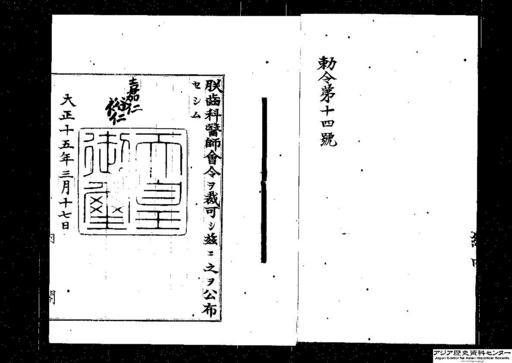 勅令第十四號
朕齒科醫師會令ヲ裁可シ茲ニ之ヲ公布
セシム
嘉仁
裕仁
天皇
御璽
大正十五年三月十七日
内閣
アジア歴史資料センター
Japan Center for Asian Historical Records